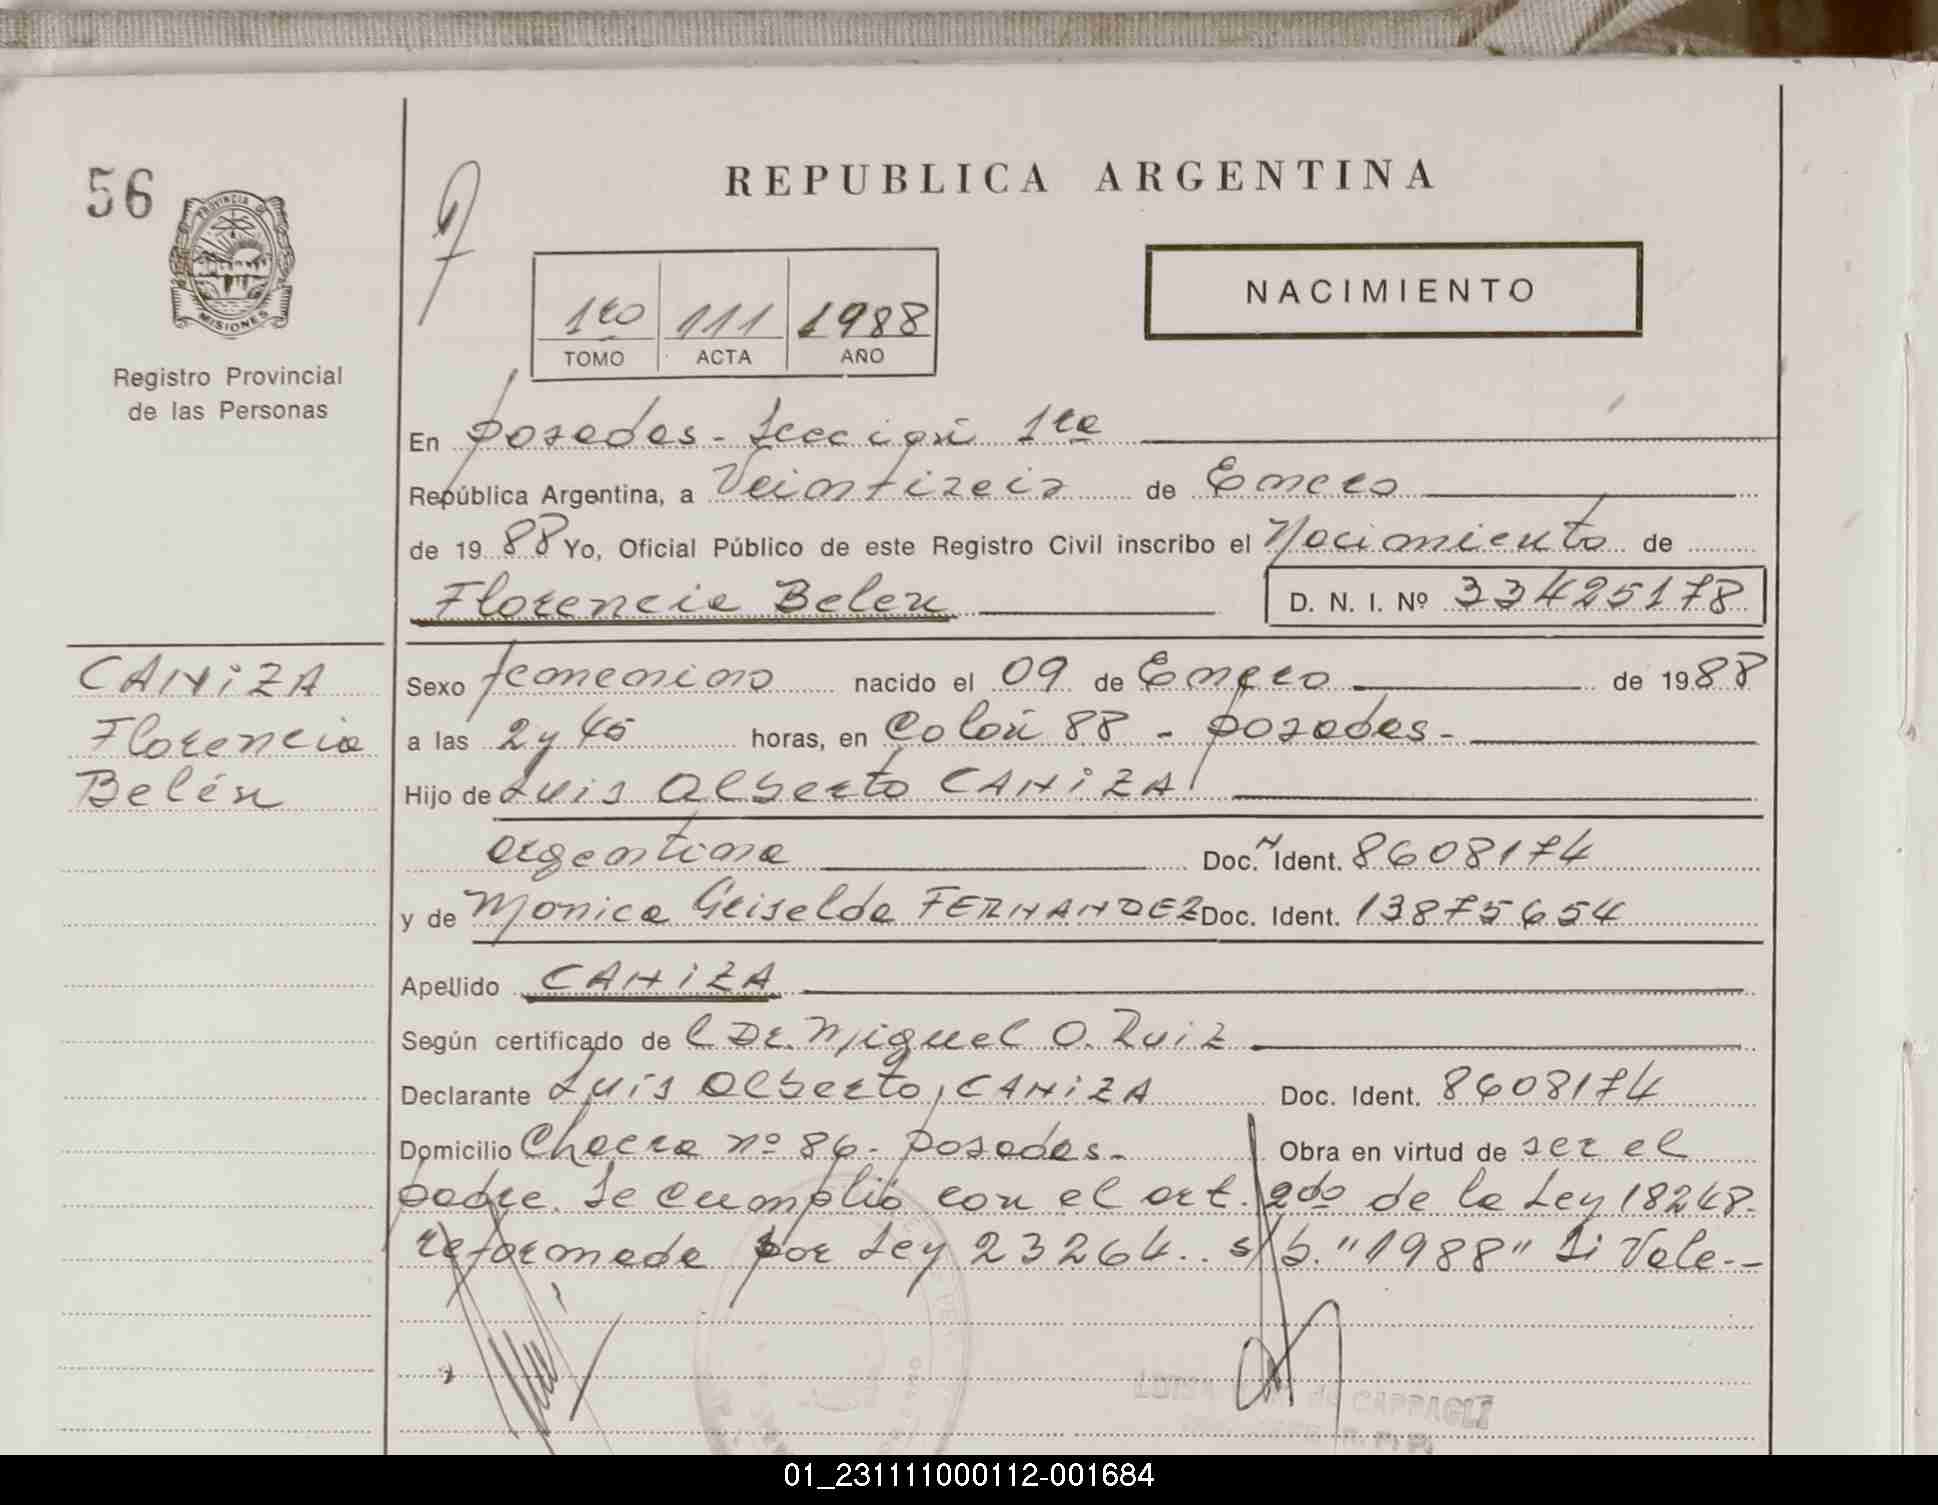 56
PROVINCIA DE
MISIONES
Registro Provincial
de las Personas
REPUBLICA ARGENTINA
1ro 111 1988
TOMO ACTA AÑO
NACIMIENTO
En posadas - Sección 1ra
República Argentina, a Veintiseis de Enero
de 1988 Yo, Oficial Público de este Registro Civil inscribo el Nacimiento de
Florencia Belen D. N. I. Nº 33425178
CANiZA
Florencia
Belén
Sexo femenino nacido el 09 de Enero de 1988
a las 2 y 45 horas, en Colón 88 - posadas -
Hijo de Luis Alberto CANiZA
argentina Doc. Ident. 8608174
y de Monica Griselda FERNANDEZ Doc. Ident. 13875654
Apellido CANiZA
Según certificado de l Dr. Miguel O. Ruiz
Declarante Luis Alberto, CANiZA Doc. Ident. 8608174
Domicilio Chacra nº 86 - posadas - Obra en virtud de ser el
padre. Se cumplió con el art. 2do de la Ley 18248.
reformada por Ley 23264.. s/b. "1988" Si Vale.--
de CAPPAGLI
01_231111000112-001684